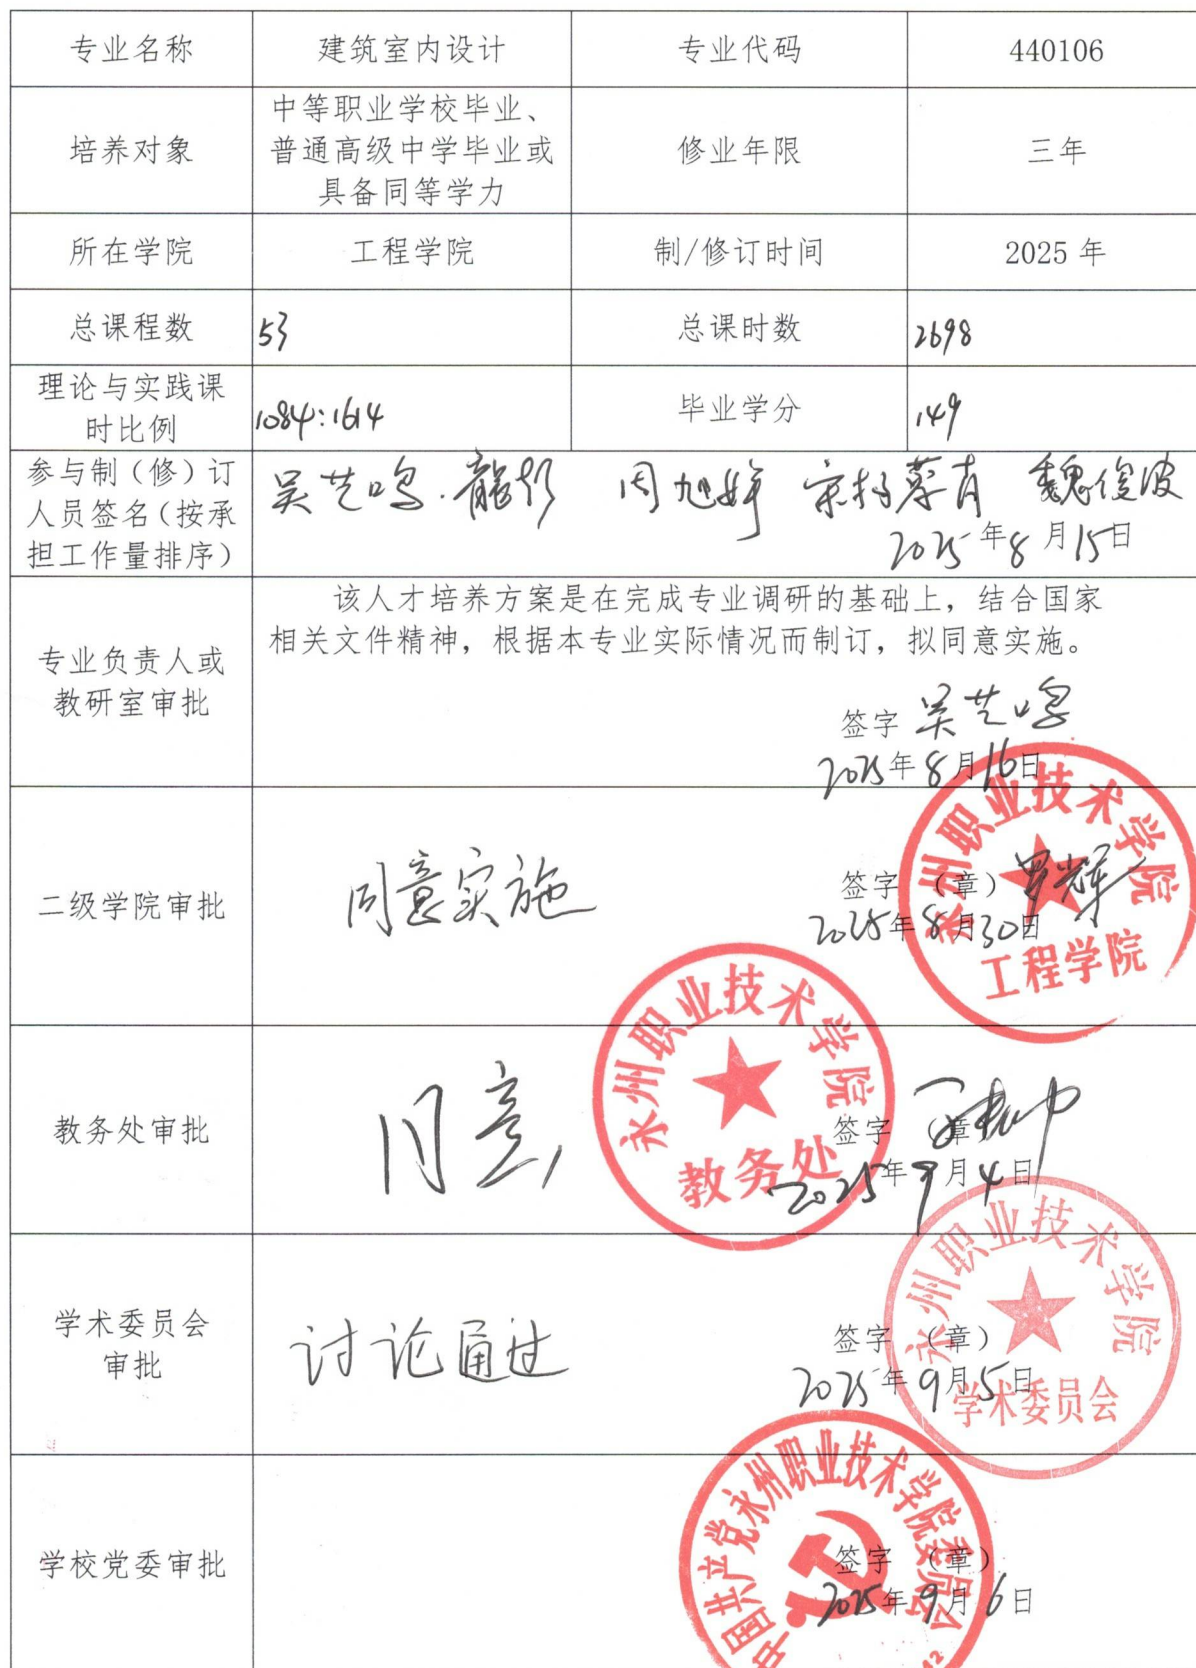 专业名称 建筑室内设计 专业代码 440106
中等职业学校毕业、
培养对象 普通高级中学毕业或 修业年限 三年
具备同等学力
所在学院 工程学院 制/修订时间 2025 年
总课程数 53 总课时数 2698
理论与实践课
时比例 1084:1614 毕业学分 149
参与制（修）订
人员签名（按承
担工作量排序）
吴芝鸣 龍彭 周旭婷 宋扬 蔡青 魏俊波
2025年8月15日
该人才培养方案是在完成专业调研的基础上，结合国家
相关文件精神，根据本专业实际情况而制订，拟同意实施。
专业负责人或
教研室审批
签字 吴芝鸣
2025年8月16日
二级学院审批 同意实施 签字（章）
2025年8月30日
永州职业技术学院
工程学院
教务处审批 同意 签字（章）
2025年9月4日
永州职业技术学院
教务处
学术委员会
审批
讨论通过 签字（章）
2025年9月5日
永州职业技术学院
学术委员会
学校党委审批 签字（章）
2025年9月6日
中国共产党永州职业技术学院委员会